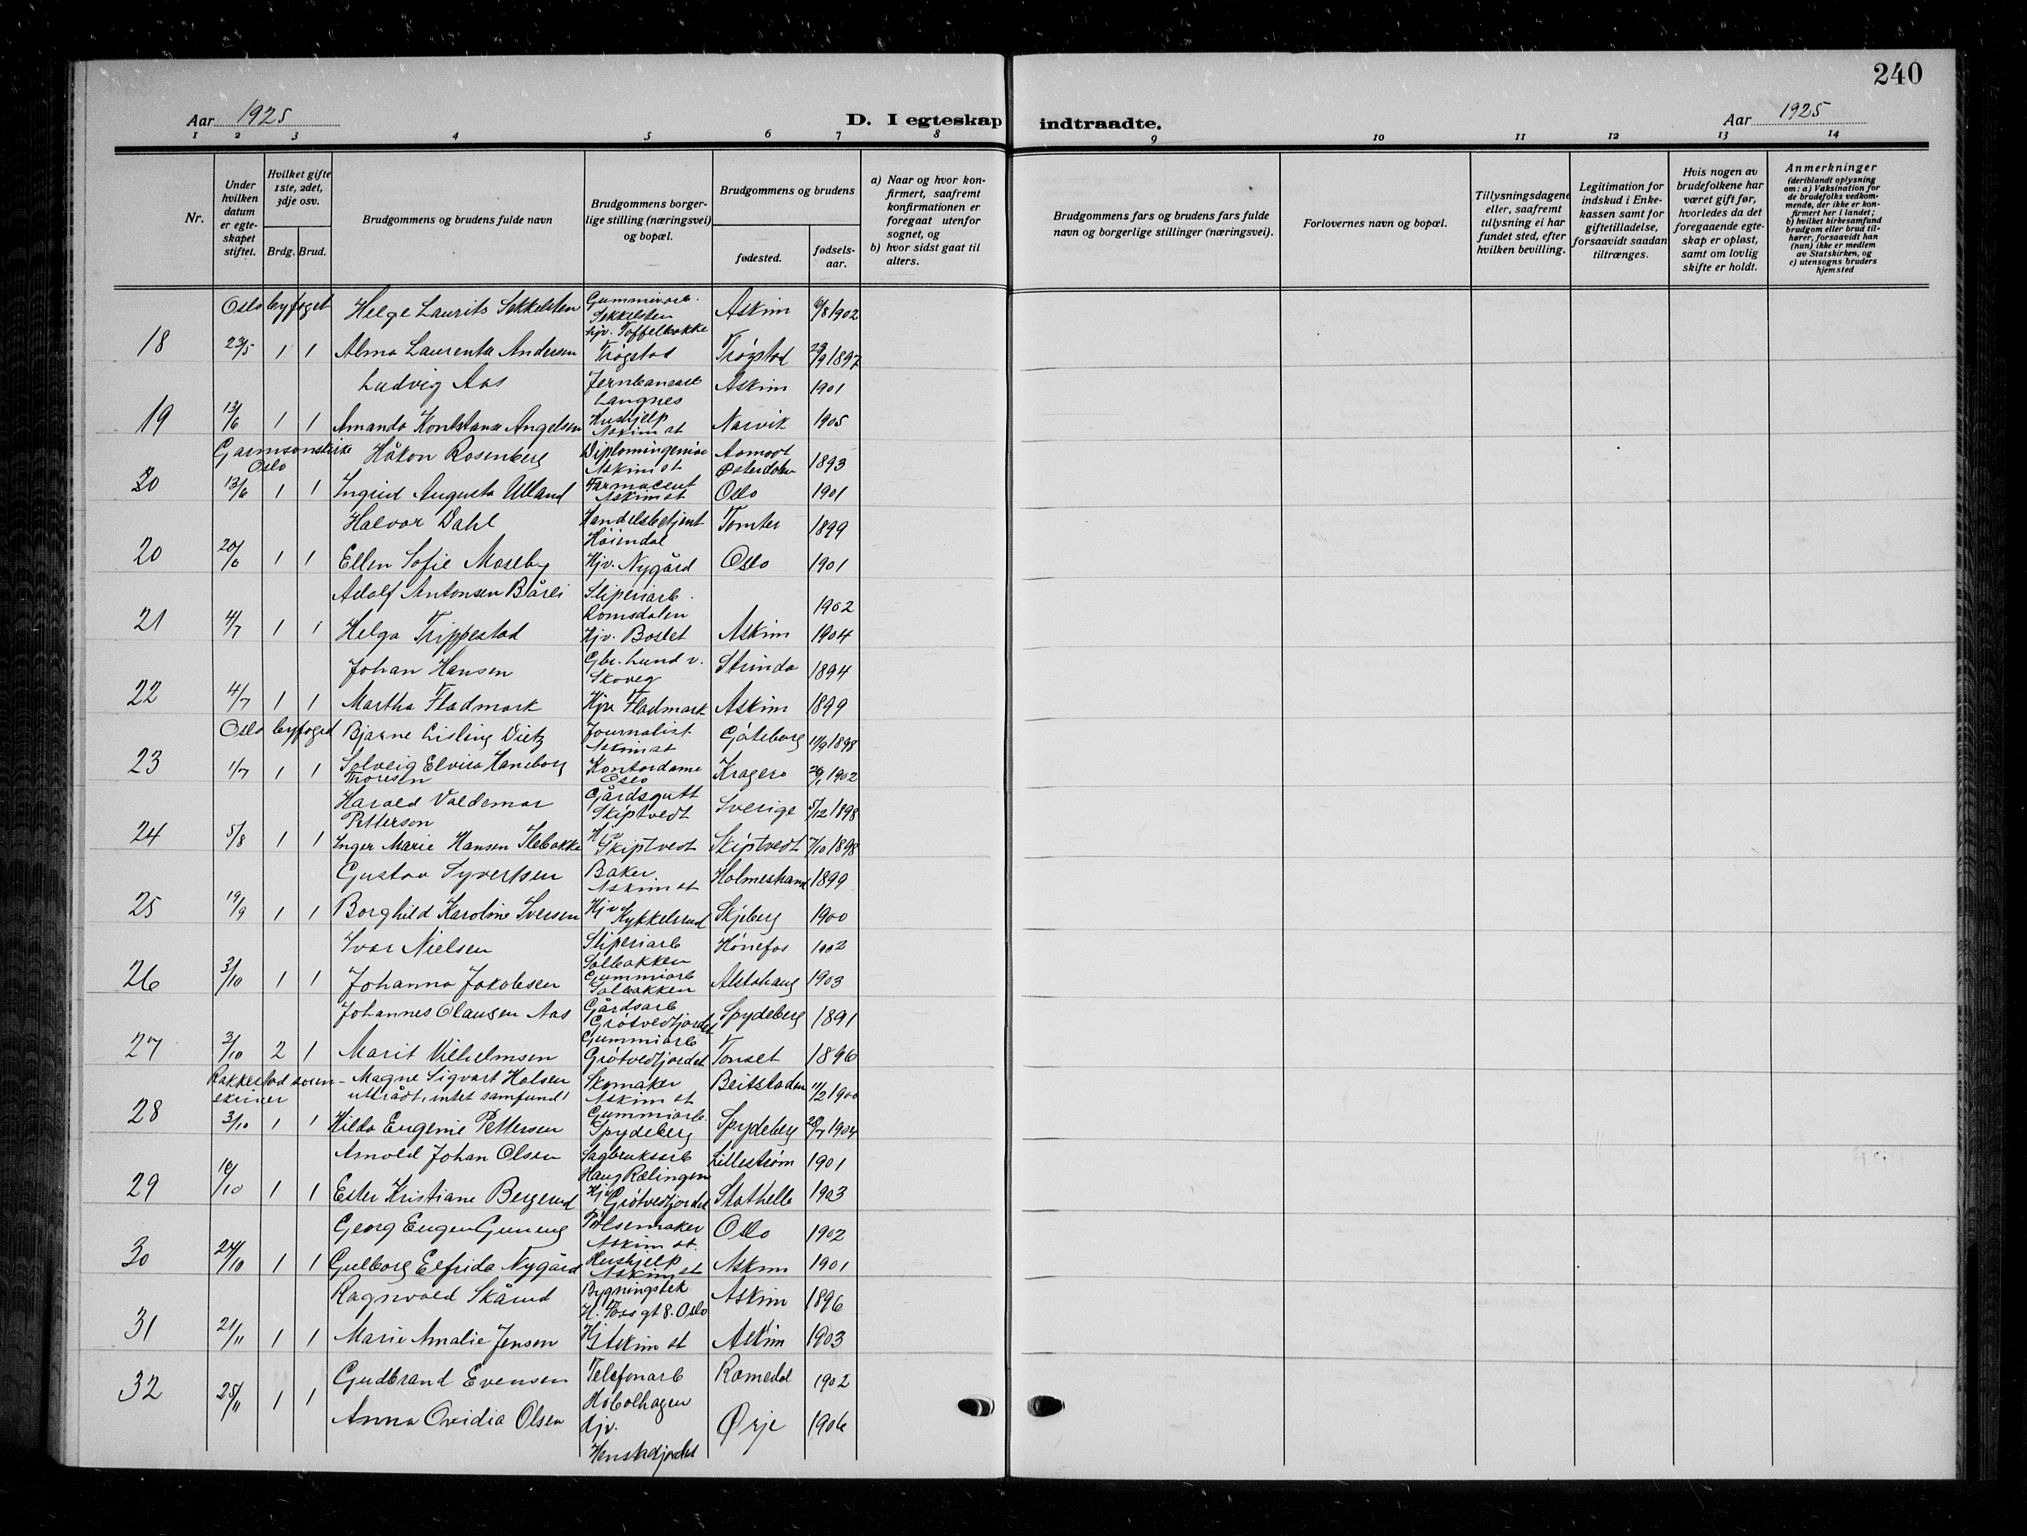 240
Aar 1925
D. I egteskap indtraadte.
Aar 1925
1 2 3 4 5 6 7 8 9 10 11 12 13 14
Nr.
Under hvilken datum er egteskapet stiftet.
Hvilket gifte 1ste, 2det, 3dje osv.
Brdg. Brud.
Brudgommens og brudens fulde navn
Brudgommens borgerlige stilling (næringsvei) og bopæl.
Brudgommens og brudens
fødested.
fødselsaar.
a) Naar og hvor konfirmert, saafremt konfirmationen er foregaat utenfor sognet, og
b) hvor sidst gaat til alters.
Brudgommens fars og brudens fars fulde navn og borgerlige stillinger (næringsvei).
Forlovernes navn og bopæl.
Tillysningsdagene eller, saafremt tillysning ei har fundet sted, efter hvilken bevilling.
Legitimation for indskud i Enkekassen samt for giftetilladelse, forsaavidt saadan tiltrænges.
Hvis nogen av brudefolkene har været gift før, hvorledes da det foregaaende egteskap er opløst, samt om lovlig skifte er holdt.
Anmerkninger
(deriblandt oplysning om: a) Vaksination for de brudefolks vedkommende, der ikke er konfirmert her i landet; b) hvilket kirkesamfund brudgom eller brud tilhører, forsaavidt han (hun) ikke er medlem av Statskirken, og c) utensogns bruders hjemsted
Oslo byfoget Helge Laurits Sekkelsten Gummiarb. Sekkelsten Askim 6/8 1902
18 23/5 1 1 Alma Laurentse Andersen hjv. Toffelbakke Trøgstad Trøgstad 23/9 1897
Ludvig Aas Jernbanearb Langnes Askim 1901
19 13/6 1 1 Amanda Konstanse Angelsen Hushjelp Askim st Narvik 1905
Garmsonskirke Oslo Håkon Rosenberg Diplomingeniør Askim st Aamodt Østerdalen 1893
20 13/6 1 1 Ingrid Augusta Ulland Farmaceut Askim st Oslo 1901
Halvor Dahl Handelsbetjent Høiendal Tomter 1899
20 20/6 1 1 Ellen Sofie Moseby Hjv. Nygård Oslo 1901
Adolf Antonsen Bårli Sliperiarb. Romsdalen 1902
21 4/7 1 1 Helga Trippestad Hjv. Boslet Askim 1904
Johan Hansen Gbr. Lund v. Skoveg Strinda 1894
22 4/7 1 1 Martha Fladmark Hjv Fladmark Askim 1899
Oslo byfoged Bjarne Lisling Dietz Journalist Askim st Göteborg 11/9 1898
23 1/7 1 1 Solveig Elvira Haneborg Thoresen Kontordame Oslo Kragerø 26/1 1902
Harald Valdemar Petterson Gårdsgutt Skiptvedt Sverige 5/12 1898
24 5/8 1 1 Inger Marie Hansen Slebakke Hjv Skiptvedt Skiptvedt 7/10 1898
Gustav Syvertsen Baker Askim st Holmestrand 1899
25 19/9 1 1 Borghild Karoline Iversen Hjv Kykkelsrud Skjeberg 1900
Ivar Nielsen Sliperiarb Solbakken Hønefos 1902
26 3/10 1 1 Johanna Jakobsen Gummiarb Solbakken Alstahaug 1903
Johannes Olausen Aas Gårdsarb Grøtvedtjordet Spydeberg 1891
27 3/10 2 1 Marit Vilhelmsen Gummiarb Grøtvedtjordet Tønset 1896
Rakkestad sorenskriver Magne Sigvart Holsen utrådt, intet samfund! Skomaker Askim st Beitstaden 11/2 1900
28 3/10 1 1 Hilda Eugenie Pettersen Gummiarb. Spydeberg Spydeberg 28/7 1904
Arnold Johan Olsen Sagbruksarb Haug Rælingen Lillestrøm 1901
29 10/10 1 1 Ester Kristiane Bergerud Hjv Grøtvedtjordet Stathelle 1903
Georg Eugen Guneng Pølsemaker Askim st. Oslo 1902
30 24/10 1 1 Gulborg Elfrida Nygård Hushjelp Askim st Askim 1901
Ragnvald Skårud Bygningstek H. Foss gt 8. Oslo Askim 1896
31 21/11 1 1 Marie Amalie Jensen Hj Askim st Askim 1903
Gudbrand Evensen Telefonarb Hobolhagen Romedal 1902
32 25/11 1 1 Anna Ovidia Olsen Hjv. Henstadjordet Ørje 1906